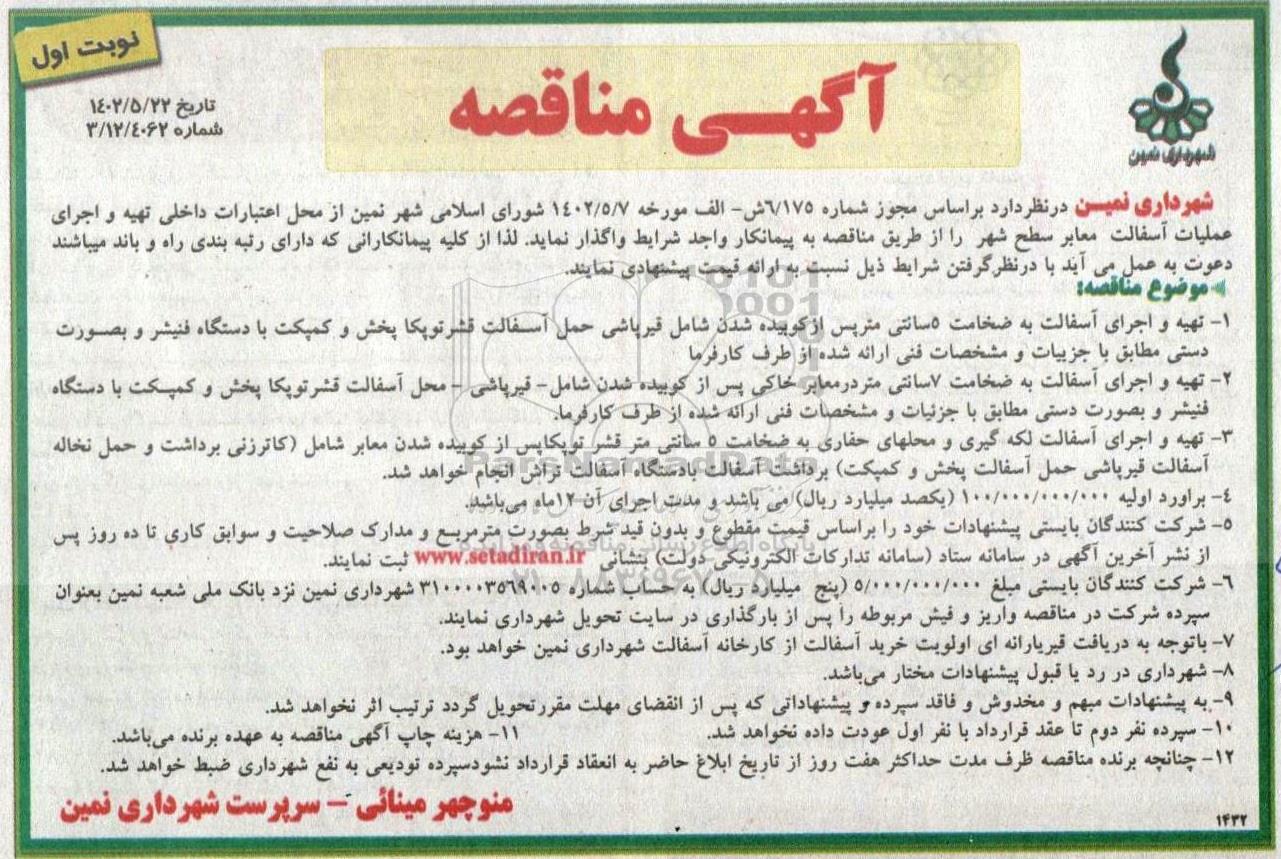 نوبت اول
آگهی مناقصه
تاریخ ۱٤۰۲/٥/۲۲
شماره ۳/۱۲/٤۰٦۲
شهرداری نمین
شهرداری نمین درنظردارد براساس مجوز شماره ٦/۱۷٥ش- الف مورخه ۱٤۰۲/٥/۷ شورای اسلامی شهر نمین از محل اعتبارات داخلی تهیه و اجرای
عملیات آسفالت معابر سطح شهر را از طریق مناقصه به پیمانکار واجد شرایط واگذار نماید. لذا از کلیه پیمانکارانی که دارای رتبه بندی راه و باند میباشند
دعوت به عمل می آید با درنظرگرفتن شرایط ذیل نسبت به ارائه قیمت پیشنهادی نمایند.
موضوع مناقصه:
۱- تهیه و اجرای آسفالت به ضخامت ٥سانتی مترپس ازکوبیده شدن شامل قیرپاشی حمل آسفالت قشرتوپکا پخش و کمپکت با دستگاه فنیشر و بصورت
دستی مطابق با جزییات و مشخصات فنی ارائه شده از طرف کارفرما
۲- تهیه و اجرای آسفالت به ضخامت ۷سانتی متردرمعابر خاکی پس از کوبیده شدن شامل- قیرپاشی - محل آسفالت قشرتوپکا پخش و کمپکت با دستگاه
فنیشر و بصورت دستی مطابق با جزئیات و مشخصات فنی ارائه شده از طرف کارفرما.
۳- تهیه و اجرای آسفالت لکه گیری و محلهای حفاری به ضخامت ٥ سانتی متر قشر توپکاپس از کوبیده شدن معابر شامل (کاترزنی برداشت و حمل نخاله
آسفالت قیرپاشی حمل آسفالت پخش و کمپکت) برداشت آسفالت بادستگاه آسفالت تراش انجام خواهد شد.
٤- براورد اولیه ۱۰۰/۰۰۰/۰۰۰/۰۰۰ (یکصد میلیارد ریال) می باشد و مدت اجرای آن ۱۲ماه می‌باشد.
٥- شرکت کنندگان بایستی پیشنهادات خود را براساس قیمت مقطوع و بدون قید شرط بصورت مترمربع و مدارک صلاحیت و سوابق کاری تا ده روز پس
از نشر آخرین آگهی در سامانه ستاد (سامانه تدارکات الکترونیکی دولت) بنشانی www.setadiran.ir ثبت نمایند.
٦- شرکت کنندگان بایستی مبلغ ٥/۰۰۰/۰۰۰/۰۰۰ (پنج میلیارد ریال) به حساب شماره ۳۱۰۰۰۰۳٥٦۹۰۰٥ شهرداری نمین نزد بانک ملی شعبه نمین بعنوان
سپرده شرکت در مناقصه واریز و فیش مربوطه را پس از بارگذاری در سایت تحویل شهرداری نمایند.
۷- باتوجه به دریافت قیریارانه ای اولویت خرید آسفالت از کارخانه آسفالت شهرداری نمین خواهد بود.
۸- شهرداری در رد یا قبول پیشنهادات مختار می‌باشد.
۹- به پیشنهادات مبهم و مخدوش و فاقد سپرده و پیشنهاداتی که پس از انقضای مهلت مقررتحویل گردد ترتیب اثر نخواهد شد.
۱۰- سپرده نفر دوم تا عقد قرارداد با نفر اول عودت داده نخواهد شد. ۱۱- هزینه چاپ آگهی مناقصه به عهده برنده می‌باشد.
۱۲- چنانچه برنده مناقصه ظرف مدت حداکثر هفت روز از تاریخ ابلاغ حاضر به انعقاد قرارداد نشودسپرده تودیعی به نفع شهرداری ضبط خواهد شد.
منوچهر مینائی - سرپرست شهرداری نمین
۱۴۳۲
ParsNamadData